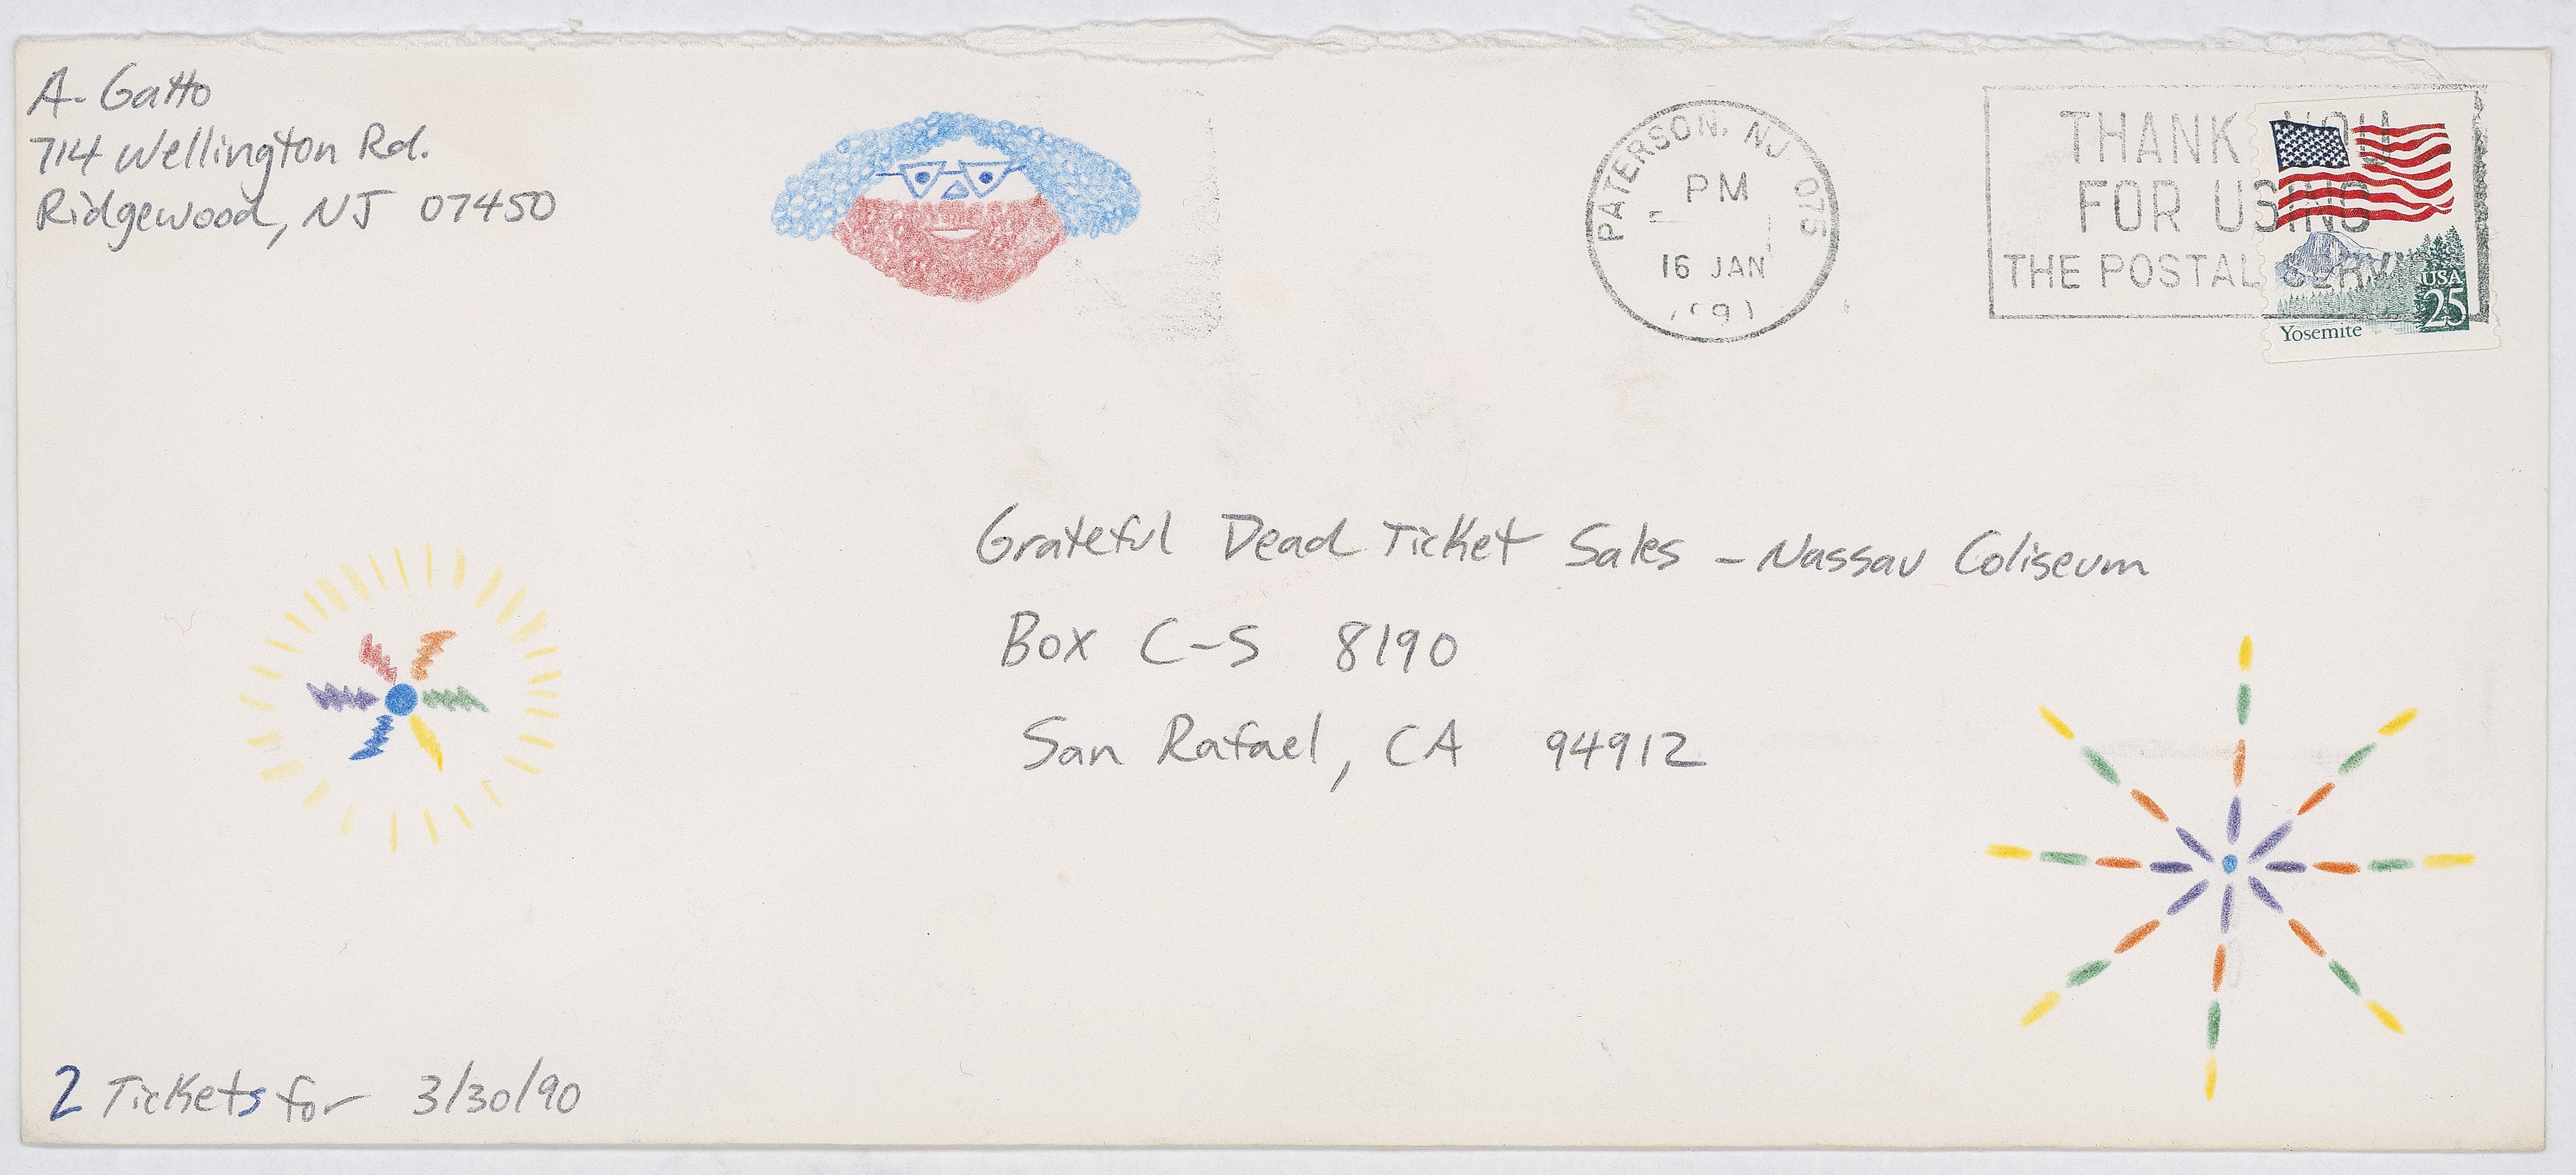 A. Gatto
714 Wellington Rd.
Ridgewood, NJ 07450
PATERSON, NJ 075
PM
16 JAN
THANK YOU
FOR USING
THE POSTAL SERV
USA
25
Yosemite
Grateful Dead Ticket Sales - Nassau Coliseum
Box C-S 8190
San Rafael, CA 94912
2 Tickets for 3/30/90